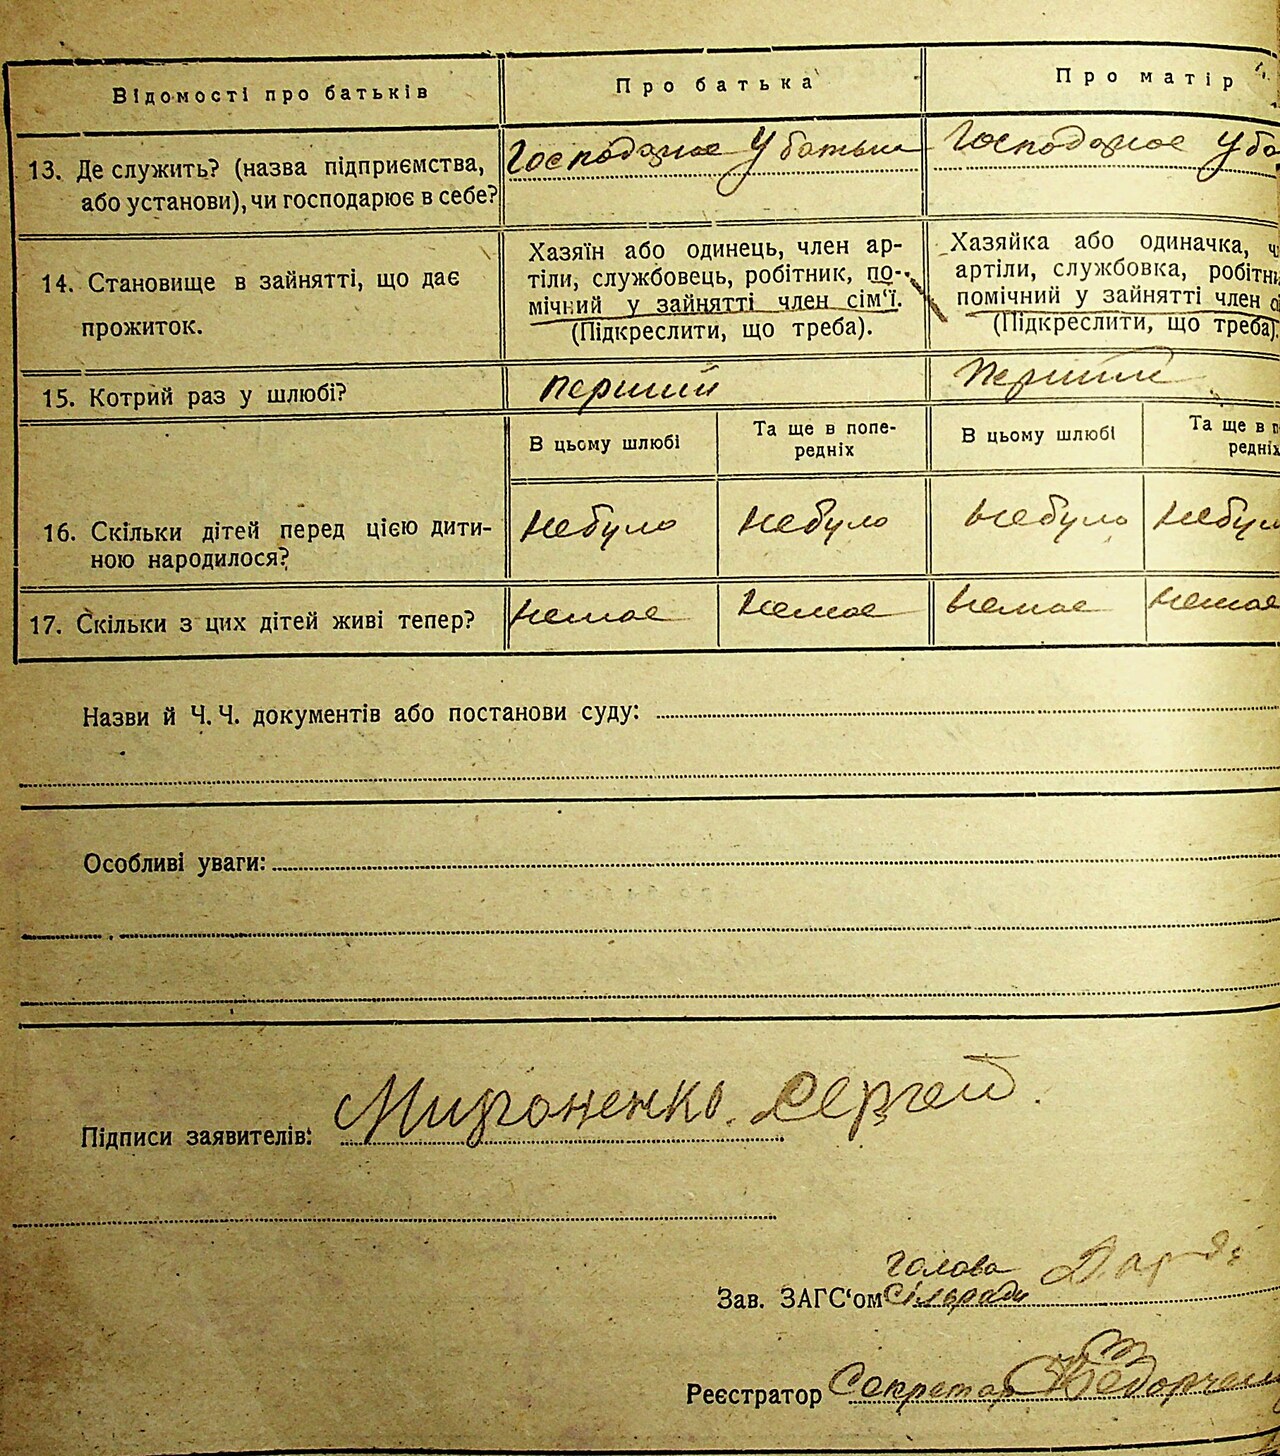 Відомості про батьків
Про батька
Про матір
13. Де служить? (назва підприємства,
або установи), чи господарює в себе?
Господарює У батька
Господарює У ба
14. Становище в зайнятті, що дає
прожиток.
Хазяїн або одинець, член ар-
тіли, службовець, робітник, по-
мічний у зайнятті член сім'ї.
(Підкреслити, що треба).
Хазяйка або одиначка, ч
артіли, службовка, робітн
помічний у зайнятті член с
(Підкреслити, що треба).
15. Котрий раз у шлюбі?
перший
перший
В цьому шлюбі
Та ще в попе-
редніх
В цьому шлюбі
Та ще в п
редніх
16. Скільки дітей перед цією дити-
ною народилося?
небуло
небуло
небуло
небуло
17. Скільки з цих дітей живі тепер?
немає
немає
немає
немає
Назви й Ч. Ч. документів або постанови суду:
Особливі уваги:
Підписи заявителів: Мироненко Сергей
Голова
Зав. ЗАГС'ом Сільради
Реєстратор Секретар Федорчен